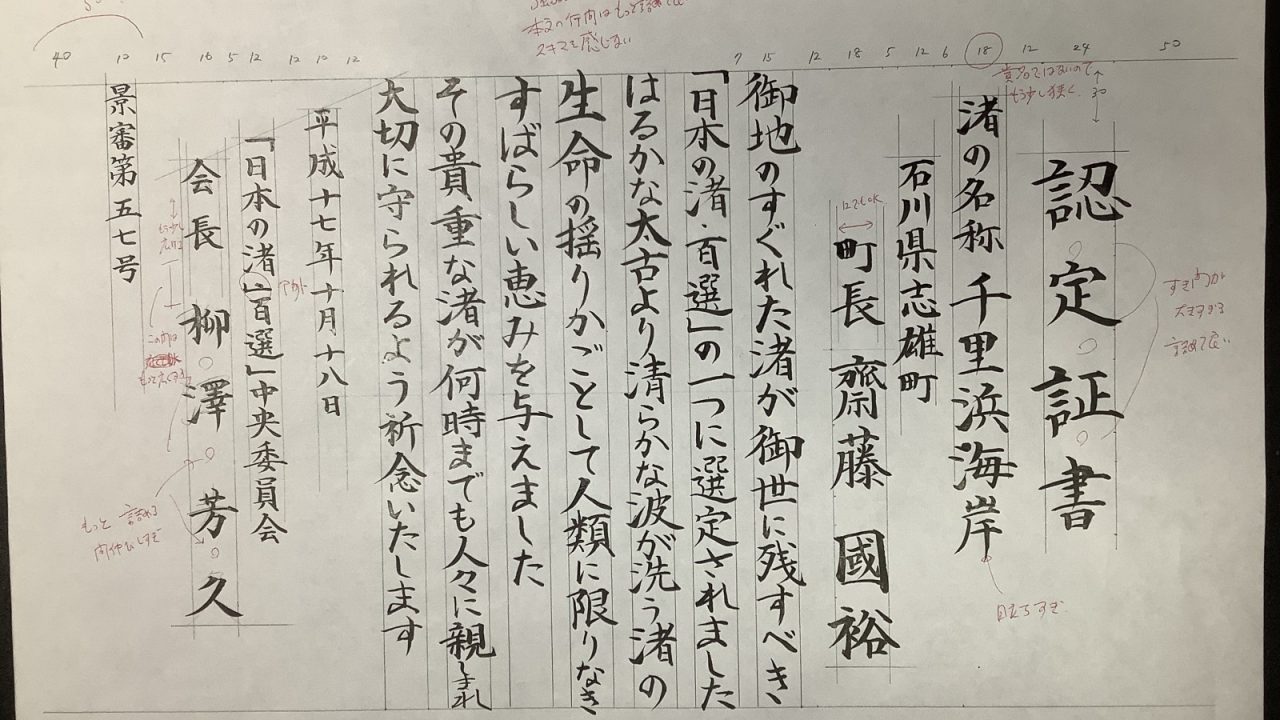 認定証書
渚の名称 千里浜海岸
石川県志雄町
町長 齋藤 國裕
御地のすぐれた渚が御世に残すべき
「日本の渚・百選」の一つに選定されました
はるかな太古より清らかな波が洗う渚の
生命の揺りかごとして人類に限りなき
すばらしい恵みを与えました
その貴重な渚が何時までも人々に親しまれ
大切に守られるよう祈念いたします
平成十七年十月十八日
「日本の渚・百選」中央委員会
会長 柳澤芳久
景審第五七号
50
24
12
18
6
12
5
18
12
15
7
12
10
12
12
5
16
15
10
40
30
もう少し狭く
12でもOK
目立ちすぎ
スキマを感じない
もっと詰める